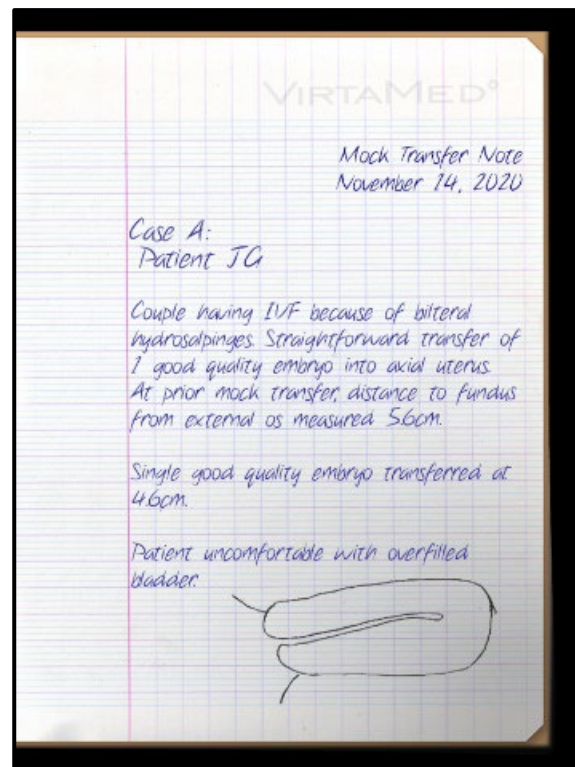 VIRTAMED®
Mock Transfer Note
November 14, 2020
Case A:
Patient JG
Couple having IVF because of bilteral
hydrosalpinges. Straightforward transfer of
1 good quality embryo into axial uterus.
At prior mock transfer, distance to fundus
from external os measured 5.6cm.
Single good quality embryo transferred at
4.6cm.
Patient uncomfortable with overfilled
bladder.